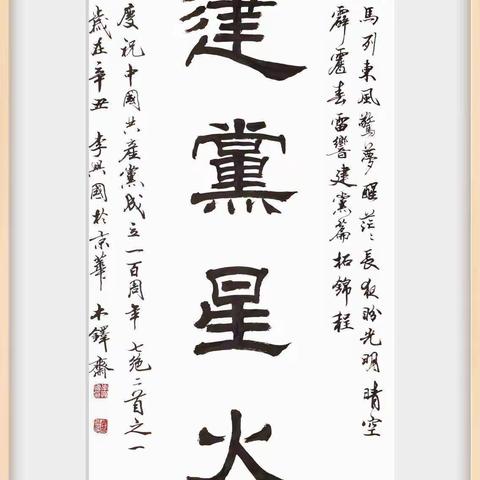 馬列東風驚夢醒茫〻長夜盼光明晴空
霹靂春雷響建黨篇拓錦程
建黨星火
慶祝中國共產黨成立一百周年 七絕二首之一
歲在辛丑 李興國於京華 木鐸齋